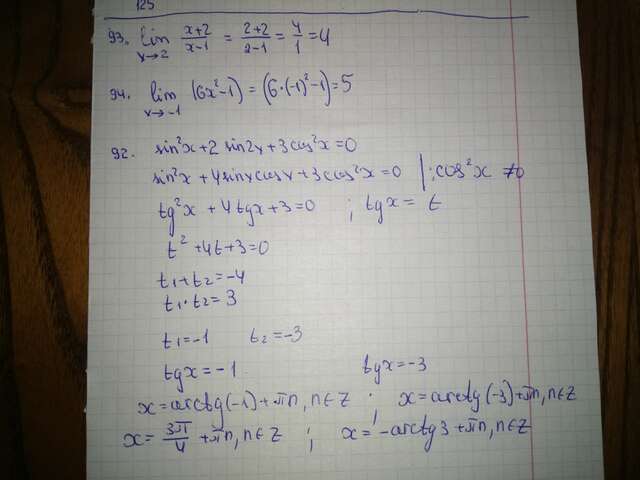 125
93. lim x→2 (x+2)/(x-1) = (2+2)/(2-1) = 4/1 = 4
94. lim x→-1 (6x²-1) = (6·(-1)²-1) = 5
92. sin²x + 2 sin2x + 3cos²x = 0
sin²x + 4sinxcosx + 3cos²x = 0 | : cos²x ≠0
tg²x + 4tgx + 3 = 0 ; tgx = t
t² + 4t + 3 = 0
t₁+t₂ = -4
t₁·t₂ = 3
t₁ = -1 t₂ = -3
tgx = -1 tgx = -3
x = arctg(-1) + πn, n∈Z ; x = arctg(-3) + πn, n∈Z
x = 3π/4 + πn, n∈Z ; x = -arctg3 + πn, n∈Z